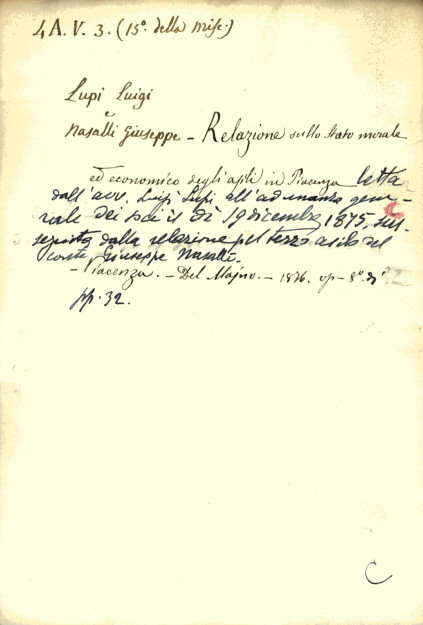 4 A. V. 3. (15º della Misc.)
Lupi Luigi
e
Nasalli Giuseppe - Relazione sullo stato morale
ed economico degli asili in Piacenza letta
dall'avv. Luigi Lupi all'adunanza gene-
rale dei soci il dì 19 dicembre 1875, sus-
seguita dalla relazione pel terzo asilo del
conte Giuseppe Nasalli.
- Piacenza. - Del Majno. - 1876. op - 8º. di
pp. 32.
C